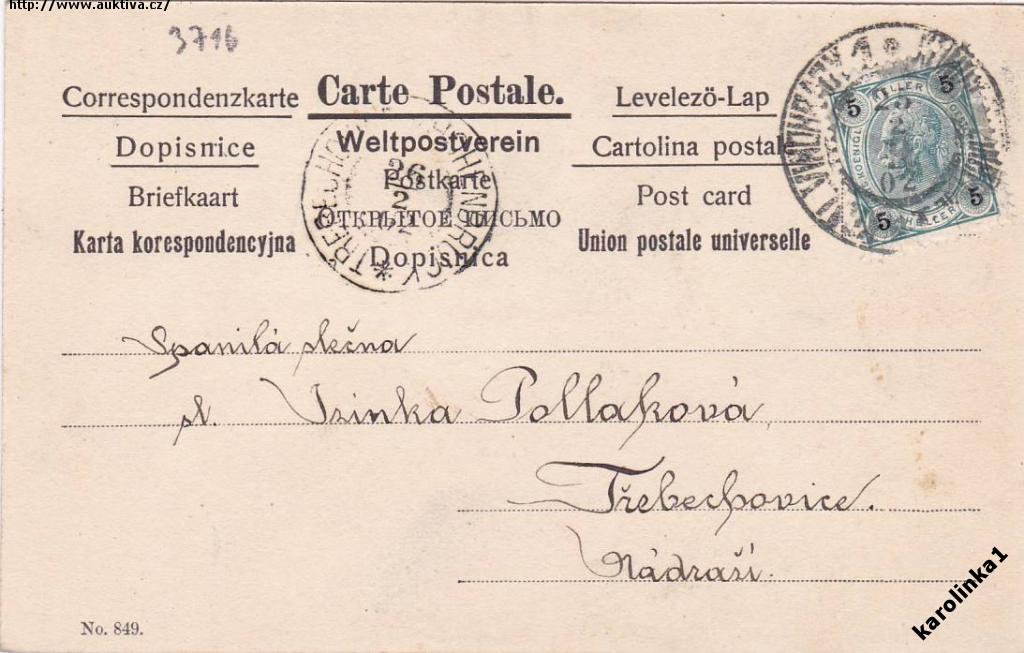 http://www.auktiva.cz/
3716
Correspondenzkarte
Dopisnice
Briefkaart
Karta korespondencyjna
Carte Postale.
Weltpostverein
Postkarte
ОТКРЫТОЕ ПИСЬМО
Dopisnica
Levelezö-Lap
Cartolina postale
Post card
Union postale universelle
26
2
5
HELLER
5
5
HELLER
5
02
Spanilá slečna
sl. Irinka Pollaková
Třebechovice.
Nádraží.
No. 849.
karolinka1